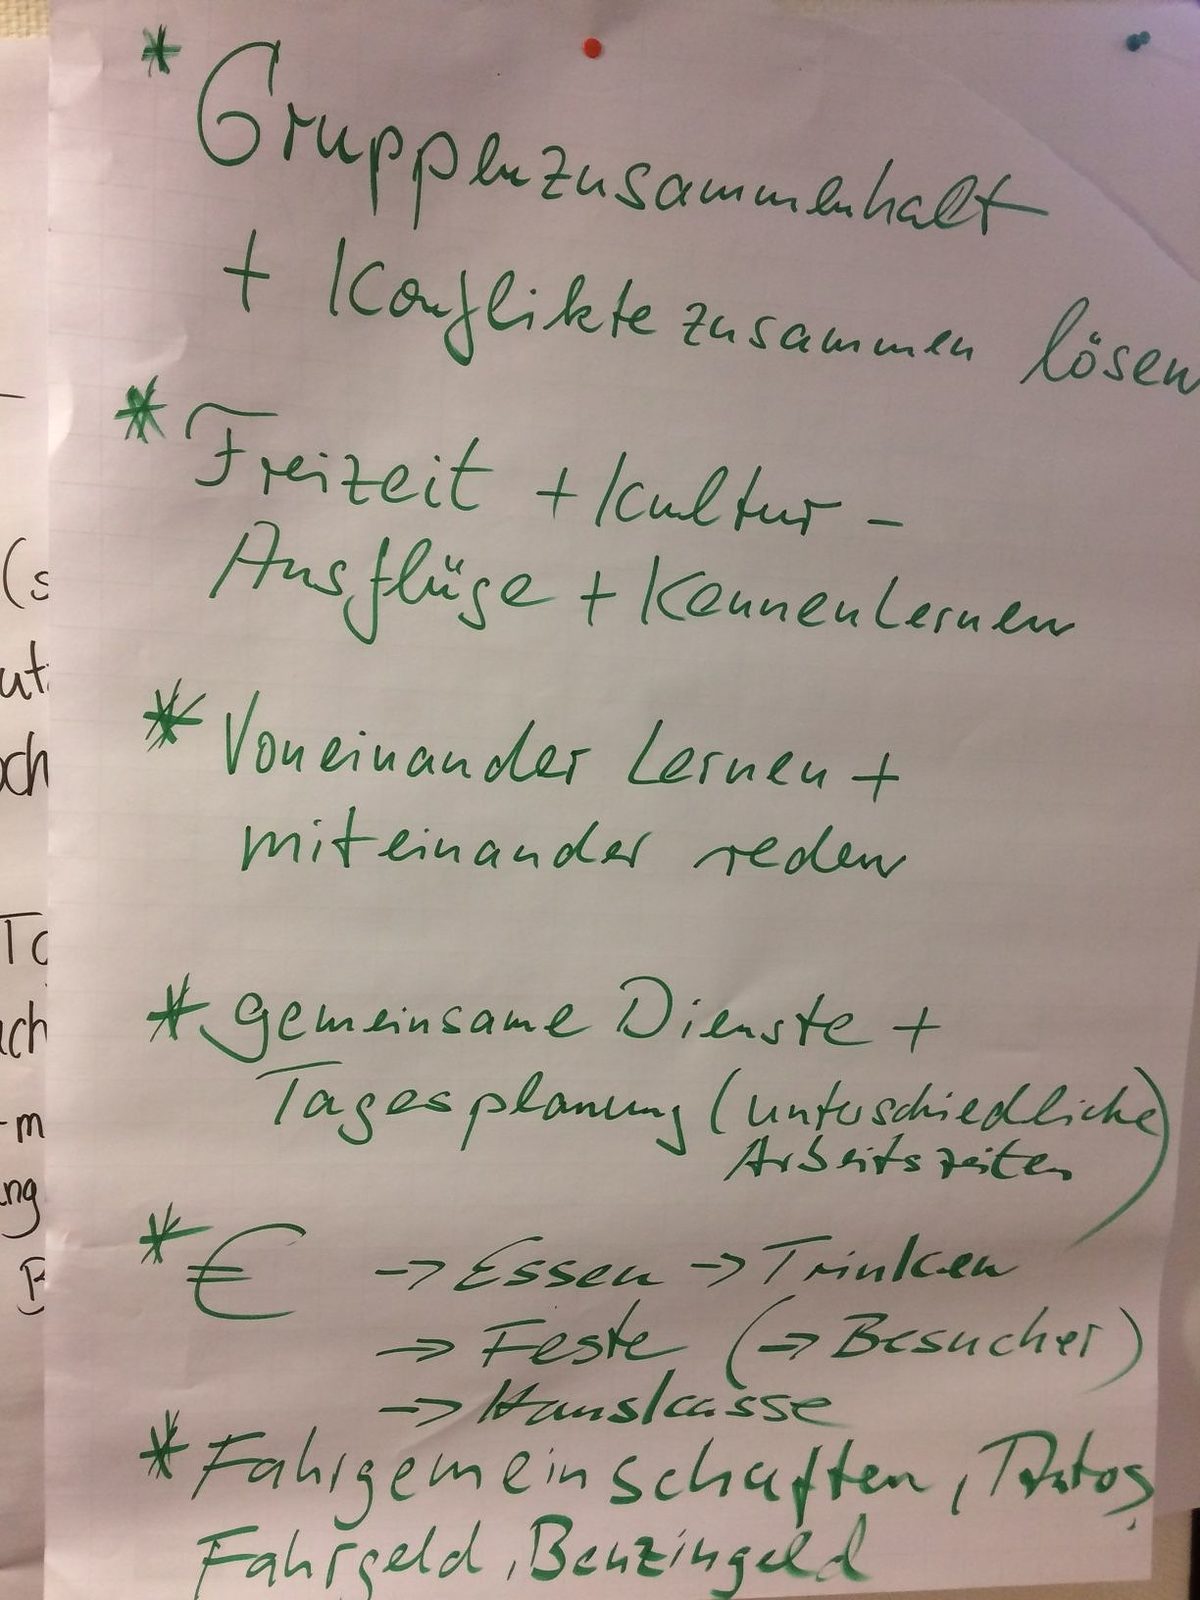 * Gruppenzusammenhalt
+ Konflikte zusammen lösen
* Freizeit + Kultur -
Ausflüge + Kennenlernen
* Voneinander Lernen +
miteinander reden
* gemeinsame Dienste +
Tagesplanung (unterschiedliche
Arbeitszeiten)
* € -> Essen -> Trinken
-> Feste (-> Besucher)
-> Hauskasse
* Fahrgemeinschaften, Autos,
Fahrgeld, Benzingeld
(s
ut
och
To
ach
-m
ng
B